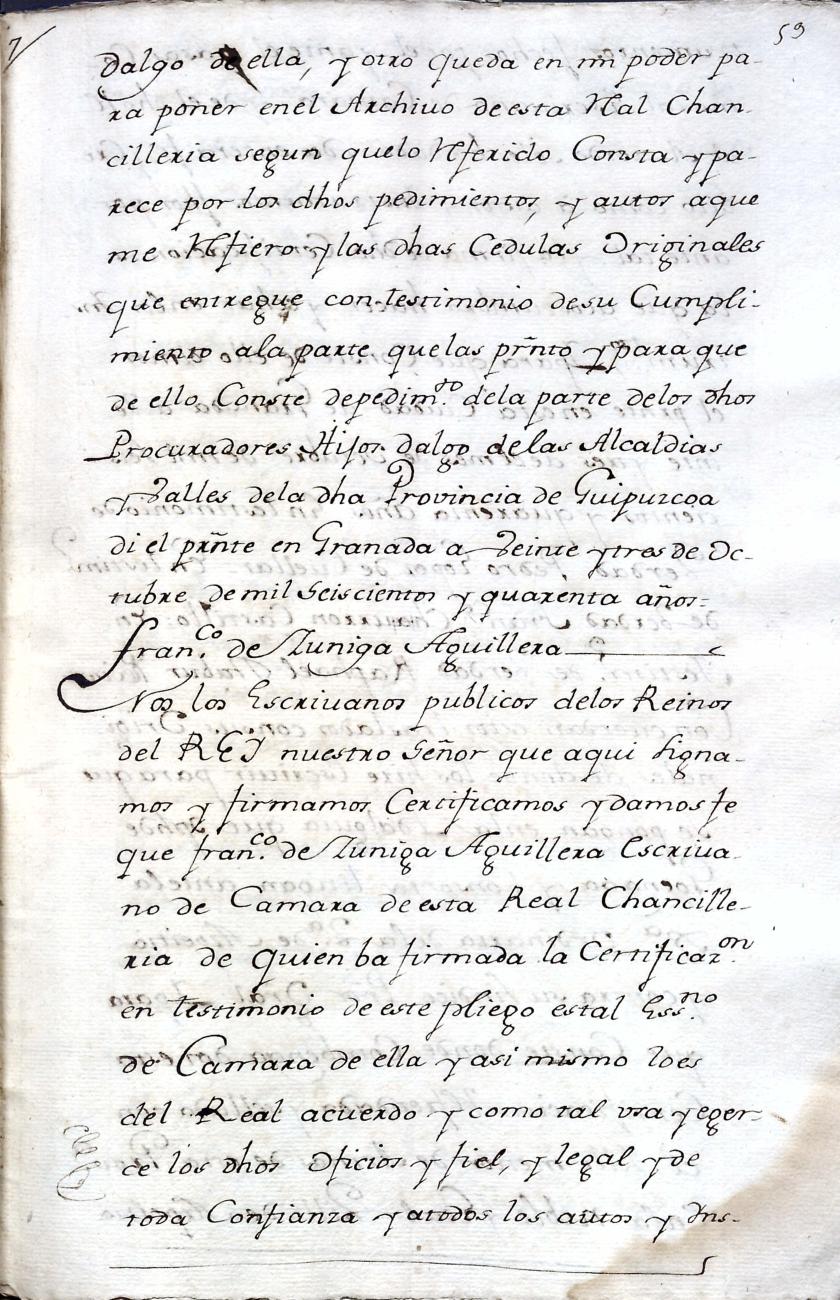 59
dalgo de ella, y otro queda en mi poder pa-
ra poner enel Archiuo de esta Rĺ Chan-
cilleria segun quelo Referido Consta y pa-
rece por los dhos pedimientos, y autos aque
me Refiero y las dhas Cedulas Originales
que entregue con testimonio desu Cumpli-
miento ala parte quelas prñto y para que
de ello Conste depedimto. dela parte delos dhos
Procuradores Hijos dalgo delas Alcaldias
y Valles dela dha Provincia de Guipuzcoa
di el prñte en Granada a Veinte y tres de Oc-
tubre demil seiscientos y quarenta años=
franco. de Zuniga Aguillera
Nos los Escriuanos publicos delos Reinos
del REY nuestro Señor que aqui signa-
mos y firmamos Certificamos ydamos fe
que franco. de Zuniga Aguillera Escriua-
no de Camara de esta Real Chancille-
ria de quien ba firmada la Certificazon.
en testimonio de este pliego es tal Essno.
de Camara de ella y asi mismo lo es
del Real acuerdo y como tal vsa y eger-
ce los dhos Oficios y fiel, y legal y de
toda Confianza y atodos los autos y Ins-